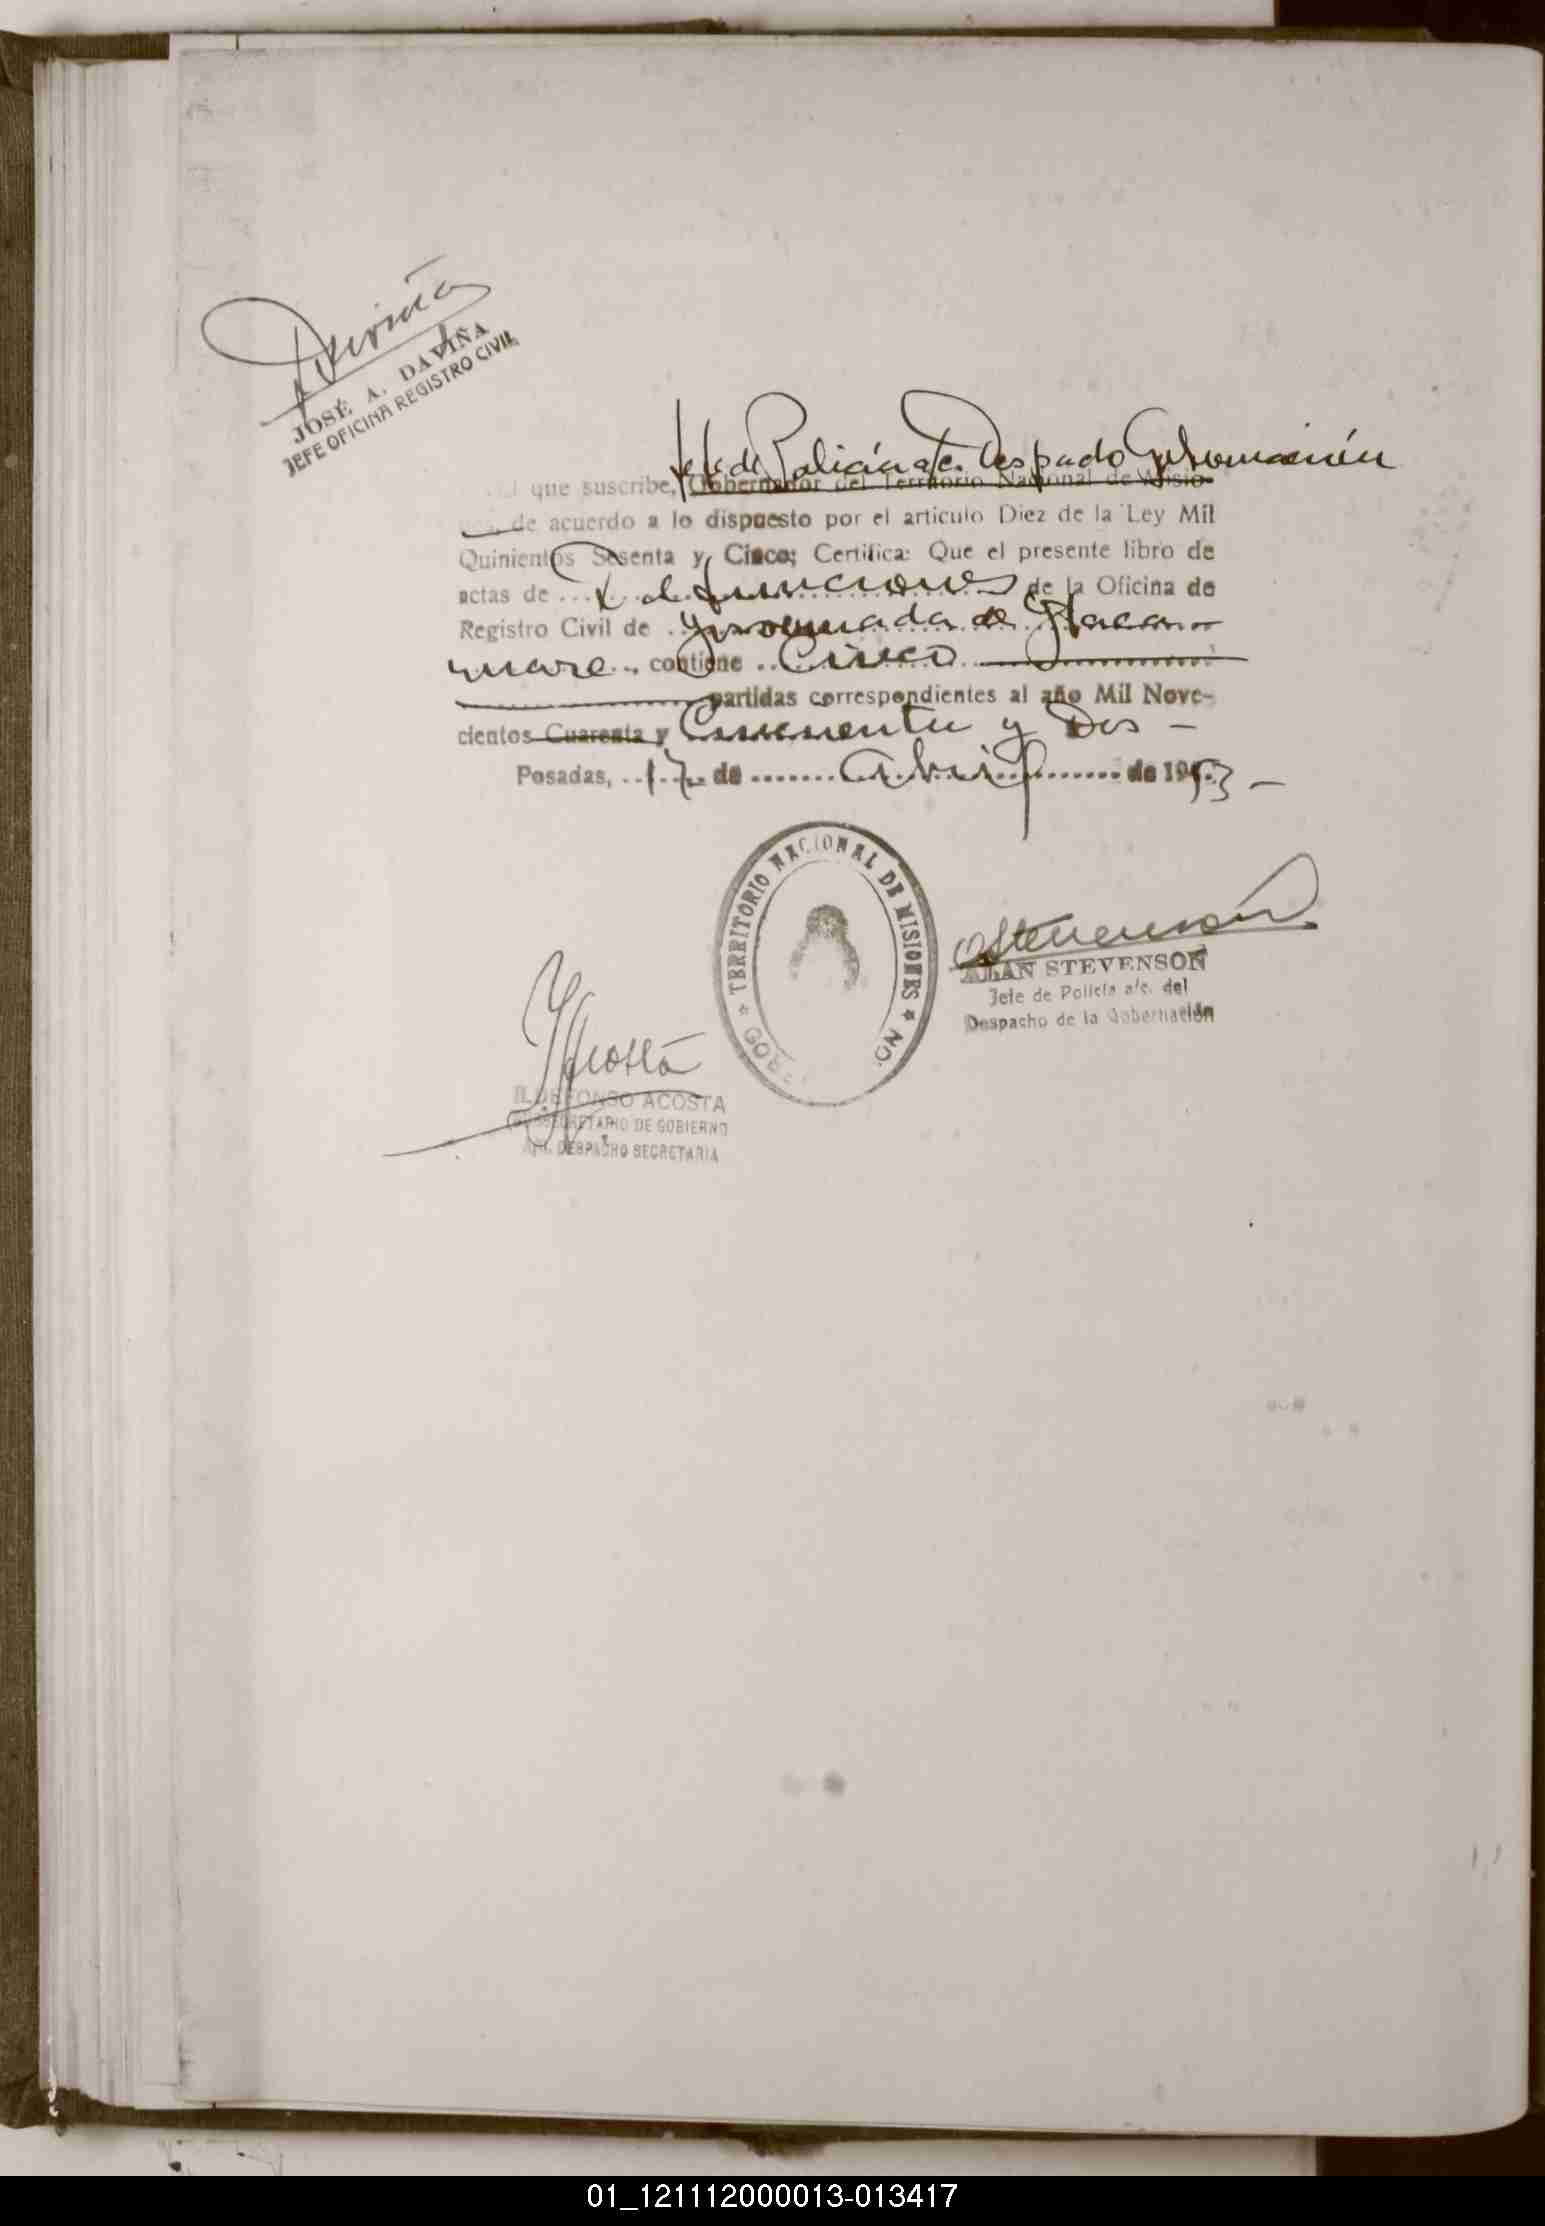 Daviña
JOSÉ A. DAVIÑA
JEFE OFICINA REGISTRO CIVIL
Jefe de Policía a/c. Despacho Gobernación
que suscribe, Gobernador del Territorio Nacional de Misio-
nes, de acuerdo a lo dispuesto por el artículo Diez de la Ley Mil
Quinientos Sesenta y Cinco; Certifica: Que el presente libro de
actas de ... Defunciones de la Oficina de
Registro Civil de ... de
contiene .. Cinco
partidas correspondientes al año Mil Nove-
cientos Cuarenta y Cincuenta y Dos -
Posadas, ..17.. de ....... Abril ....... de 1953 -
TERRITORIO NACIONAL DE MISIONES
Stevenson
ALAN STEVENSON
Jefe de Policía a/c. del
Despacho de la Gobernación
Acosta
ILDEFONSO ACOSTA
SUBSECRETARIO DE GOBIERNO
DESPACHO SECRETARIA
01_121112000013-013417